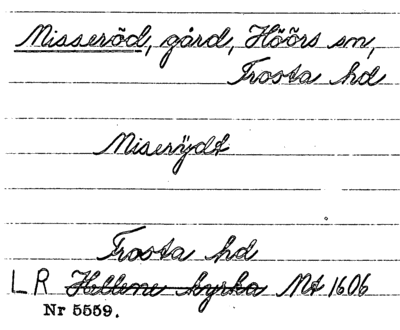 Misseröd, gård, Höörs sn,
Frosta hd
Miserÿdt
Frosta hd
LR Hellene kyrka Mt 1606
Nr 5559.